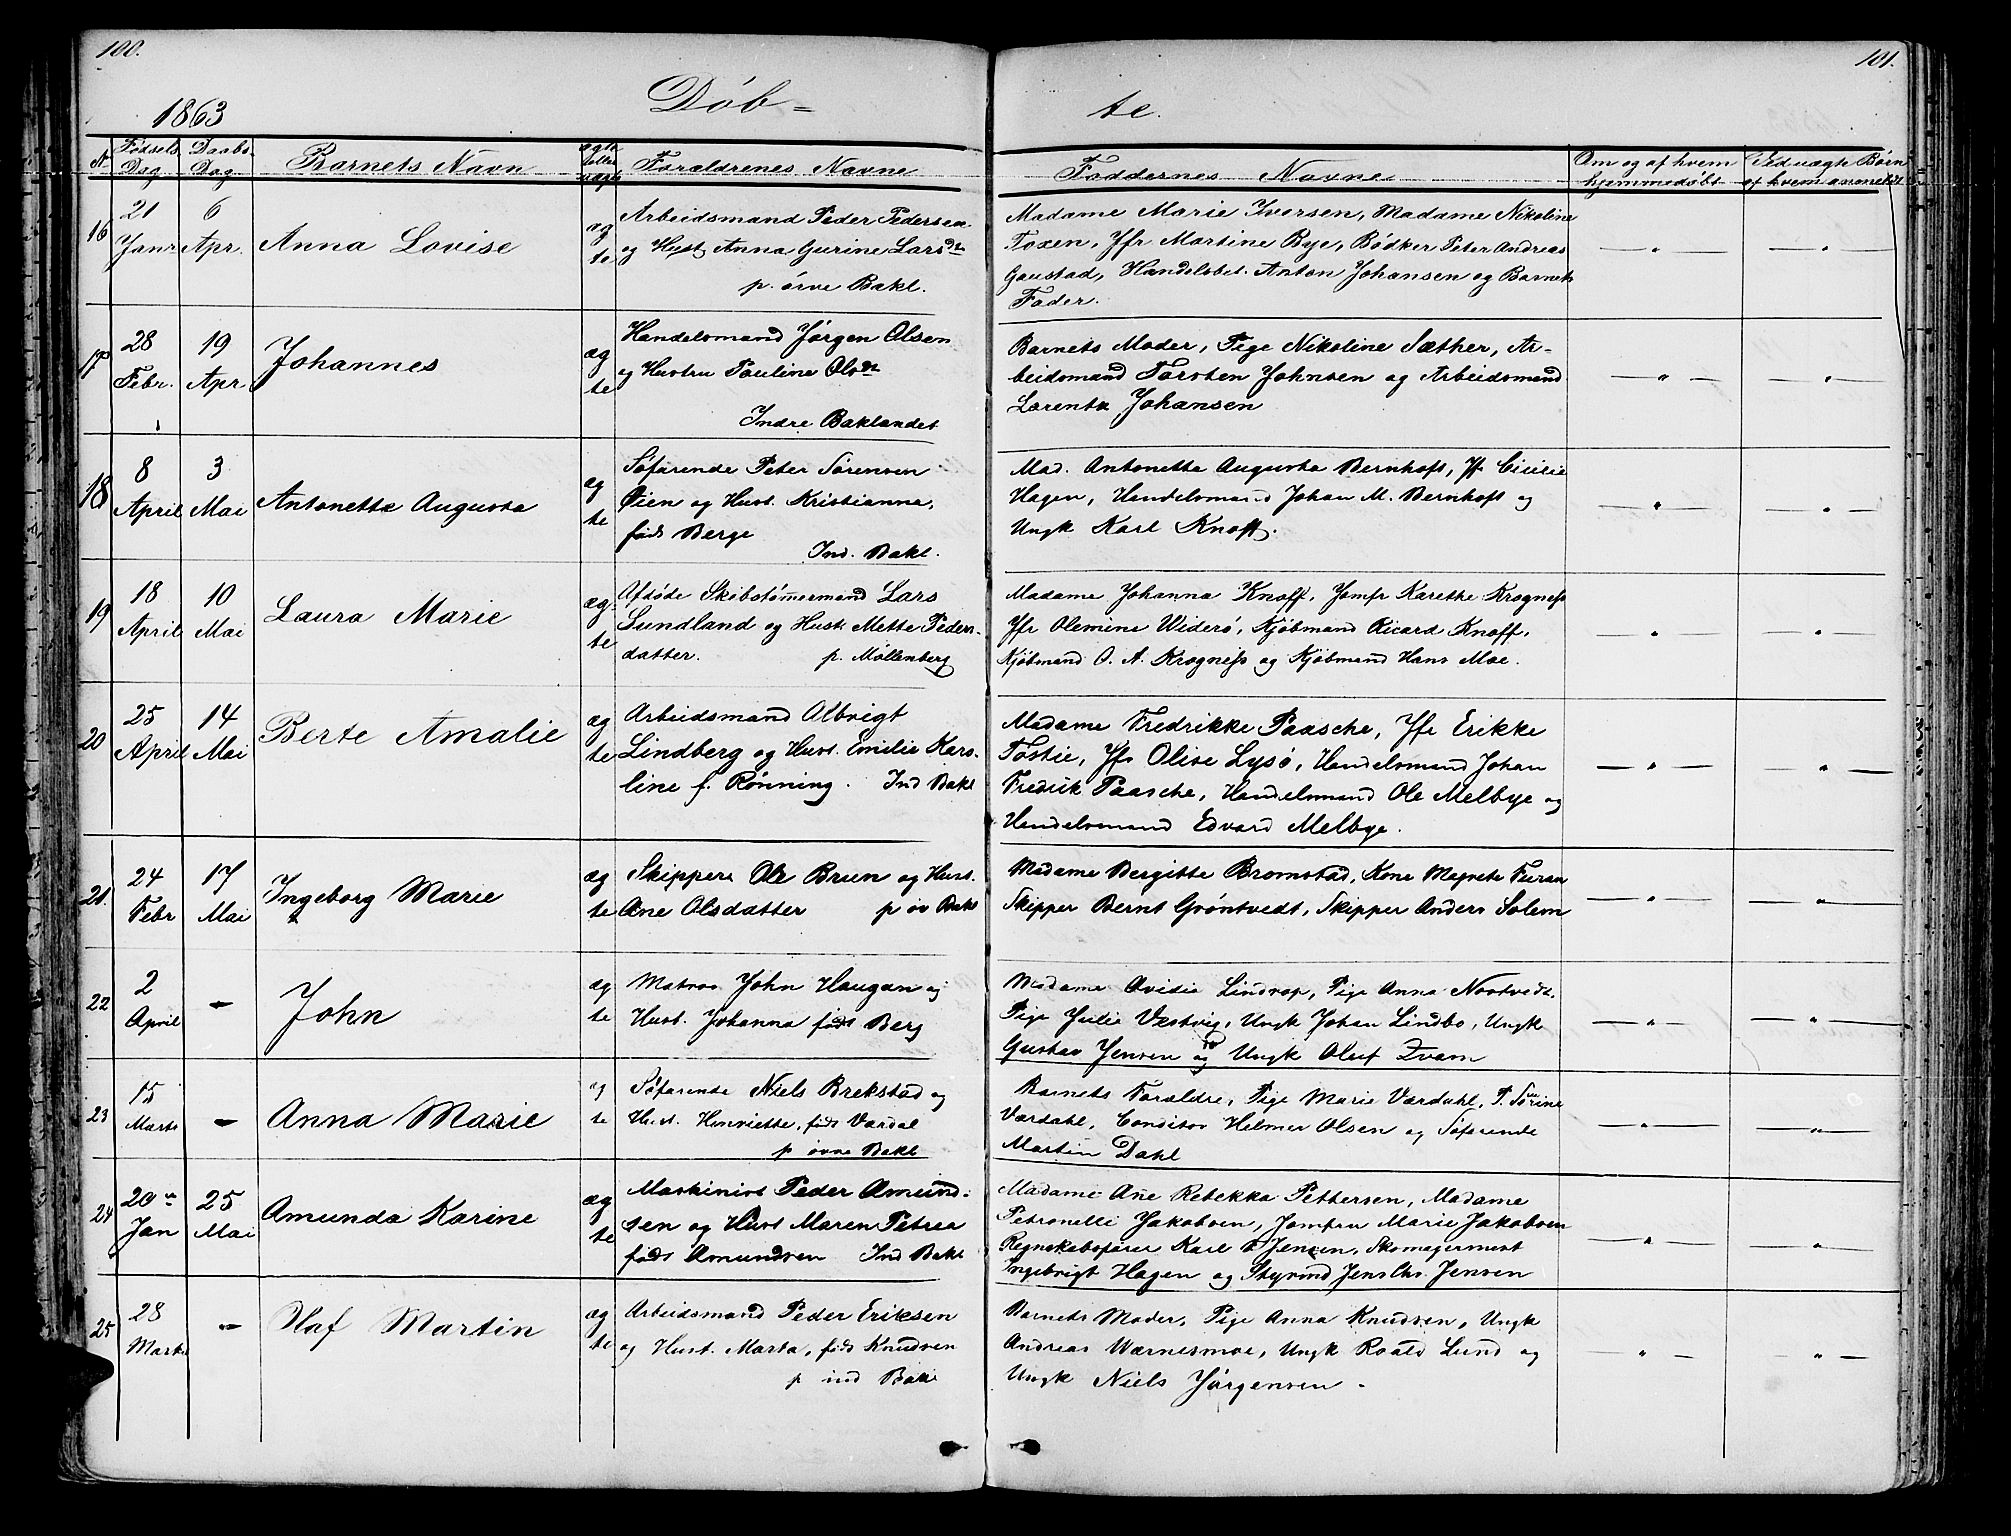 100.
101.
1863
Døb-
te.
N
Fødsels Dag
Daabs Dag
Barnets Navn
Forældrenes Navne
Faddernes Navne
Om og af hvem hjemmedøbt
Ved uægte Børn af hvem anmeldt
16
21 Janr
6 Apr.
Anna Lovise
æg te
Arbeidsmand Peder Pedersen
og Hust. Anna Gurine Larsdtr
p. øvre Bakl.
Madame Marie Iversen, Madame Nikoline
Toxen, Jfr Martine Bye, Bødker Peter Andreas
Gaustad, Handelsbet. Anton Johansen og Barnets
Fader.
— " —
— " —
17
28 Febr.
19 Apr.
Johannes
æg te
Handelsmand Jørgen Olsen
og Hustru Pauline Olsdtr
Indre Baklandet
Barnets Moder, Pige Nikoline Sæther, Ar-
beidsmand Torsten Johnsen og Arbeidsmand
Lorentz Johansen
— " —
— " —
18
8 April
3 Mai
Antonette Augusta
æg te
Søfarende Peter Sørensen
Øien og Hust. Kristianna,
født Berge
Ind. Bakl.
Mad. Antonette Augusta Bernhoft, Jf Cicilie
Hagen, Handelsmand Johan M. Bernhoft og
Ungk Karl Knoff.
— " —
— " —
19
18 April
10 Mai
Laura Marie
æg te
Afdøde Skibstømmermand Lars
Sundland og Hust. Mette Peders-
datter. p. Møllenberg
Madame Johanna Knoff, Jomfr Karethe Krogness
Jfr Olemine Widerø, Kjøbmand Ricard Knoff,
Kjøbmand O. A. Krogness og Kjøbmand Hans Moe.
— " —
— " —
20
25 April
14 Mai
Berte Amalie
æg te
Arbeidsmand Albrigt
Lindberg og Hust. Emilie Karo-
line f. Rønning. Ind Bakl
Madame Fredrikke Paasche, Jfr Erikke
Tostie, Jfr Olive Lysø, Handelsmand Johan
Fredrik Paasche, Handelsmand Ole Melbye og
Handelsmand Edvard Melbye.
— " —
— " —
21.
24 Febr
17 Mai
Ingeborg Marie
æg te
Skipper Ole Bruun og Hust.
Ane Olsdatter p øv Bakl
Madame Bergitte Bromstad, Kone Magrete Furan
Skipper Bernt Grøntvedt, Skipper Anders Solem
— " —
— " —
22
2 April
—
John
æg te
Matros John Haugan og
Hust. Johanna født Berg
Madame Ovidia Lindrop, Pige Anna Nostvedt,
Pige Julie Vestvig, Ungk Johan Lindbo, Ungk
Gustav Jensen og Ungk Oluf Zvam
— " —
— " —
23
15 Marts
—
Anna Marie
æg te
Søfarende Niels Brekstad og
Hust. Henriette, født Værdal
p øvre Bakl
Barnets Forældre, Pige Marie Værdahl, P. Sørine
Værdahl, Conditor Helmer Olsen og Søfarende
Martin Dahl
— " —
— " —
24
20 Jan
25 Mai
Amunda Karine
æg te
Maskinist Peder Amund-
sen og Hust Maren Petrea
født Amundsen Ind Bakl
Madame Ane Rebekka Pettersen, Madame
Petronelle Jakobsen, Jomfru Marie Jakobsen
Regnskabsfører Karl Jensen, Skomagermest
Ingebrigt Hagen og Styrmd Jens Chr. Jensen
— " —
— " —
25
28 Marts
—
Olaf Martin
æg te
Arbeidsmand Peder Eriksen
og Hust. Marta, født Knudsen
p ind Bakl
Barnets Moder, Pige Anna Knudsen, Ungk
Andreas Wærnesmoe, Ungk Roald Lund og
Ungk Niels Jørgensen.
— " —
— " —